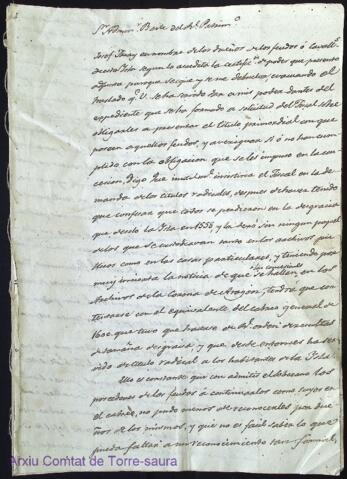 Sr. Admor. Baile del Rl. Patrimo.
Josef Thuay en nombre de los dueños de los feudos ó cavallas.
de esta Isla segun lo acredita la certifn. de poder que presento
adjunta para que saque y se me debuelva, evacuando el
traslado q. V. se ha servido dar a mis poder dantes del
expediente que se ha formado a solicitud del Fiscal sobre
obligarles a presentar el titulo primordial con que
poseen aquellos feudos, y averiguar si ó no han cum-
plido con la obligacion que se les impuso en la con-
cesion, digo: Que inutilmte. insistiria el Fiscal en la de-
manda de los titulos radicales, despues de haver tenido
que confesar que todos se perdieron en la desgracia
que asoló la Isla en 1558 y la dexó sin ningun papel
de los que se custodiavan tanto en los archivos pu-
blicos como en las casas particulares, y teniendo por
muy infundada la noticia de que se hallen en los
sus concesiones
Archivos de la Corona de Aragón, tendrá que con-
tentarse con el equivalente del cabreo general de
1600 que tuvo que hacerse de Rl. orden de resultas
de tamaña desgracia, y que desde entonces ha ser-
vido de titulo radical a los habitantes de la Isla.
Ello es constante que con admitir el Soberano los
procedores de los feudos á continuarlos como suyos en
el cabreo, no pudo menos de reconocerles por due-
ños de los mismos, y que no es facil saber lo que
pueda faltar a un reconocimiento tan formal,
Arxiu Comtat de Torre-saura